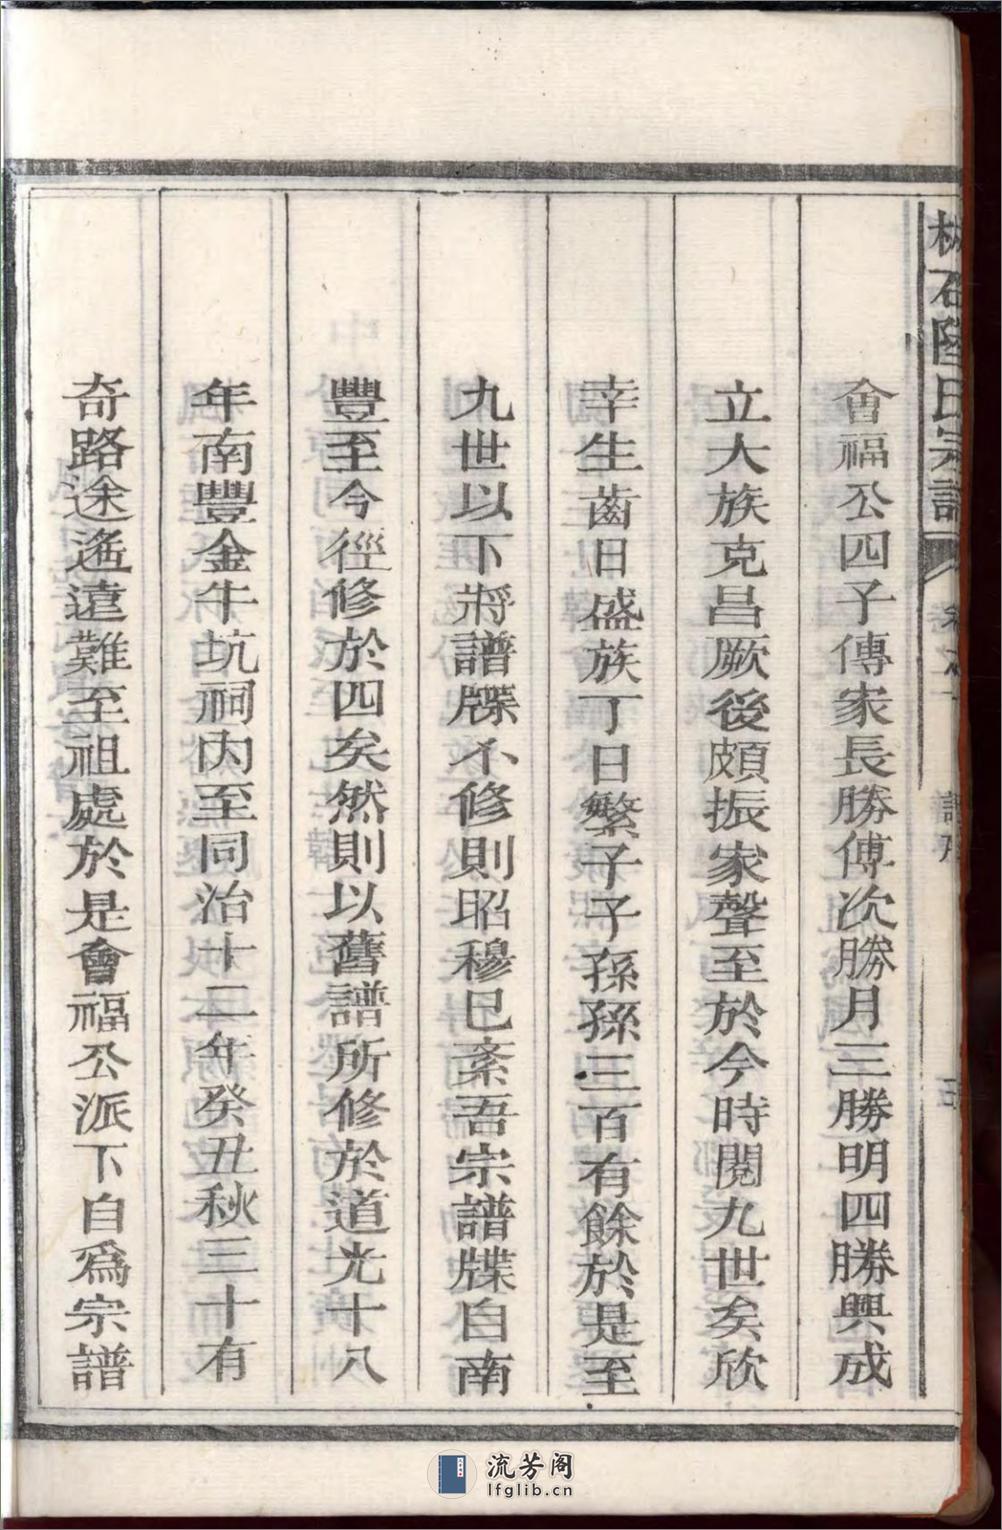 會福公四子傳家長勝傅次勝月三勝明四勝興成
立大族克昌厥後頗振家聲至於今時閱九世矣欣
幸生齒日盛族丁日繁子子孫孫三百有餘於是至
九世以下將譜牒不修則昭穆已紊吾宗譜牒自南
豐至今徑修於四矣然則以舊譜所修於道光十八
年南豐金牛坑祠內至同治十二年癸丑秋三十有
奇路途遙遠難至祖處於是會福公派下自為宗譜
石陸氏宗譜
流芳阁
lfglib.cn